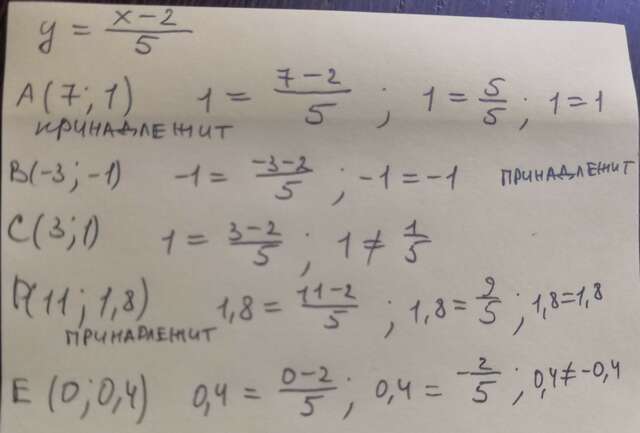 y = \frac{x-2}{5}
A(7; 1) 1 = \frac{7-2}{5} ; 1 = \frac{5}{5} ; 1 = 1
ПРИНАДЛЕЖИТ
B(-3; -1) -1 = \frac{-3-2}{5} ; -1 = -1 ПРИНАДЛЕЖИТ
C(3; 1) 1 = \frac{3-2}{5} ; 1 ≠ \frac{1}{5}
D(11; 1,8) 1,8 = \frac{11-2}{5} ; 1,8 = \frac{9}{5} ; 1,8=1,8
ПРИНАДЛЕЖИТ
E (0; 0,4) 0,4 = \frac{0-2}{5} ; 0,4 = \frac{-2}{5} ; 0,4 ≠ -0,4